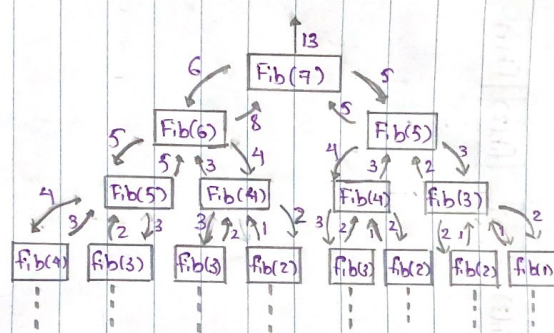 13
6 Fib(7) 5
Fib(6) 8 5 Fib(5)
5 5 3 4 4 3 2 3
Fib(5) Fib(4) Fib(4) Fib(3)
4 3 2 3 3 2 1 2 3 2 1 2 2 1 1 2
Fib(4) Fib(3) Fib(3) Fib(2) Fib(3) Fib(2) Fib(2) Fib(1)